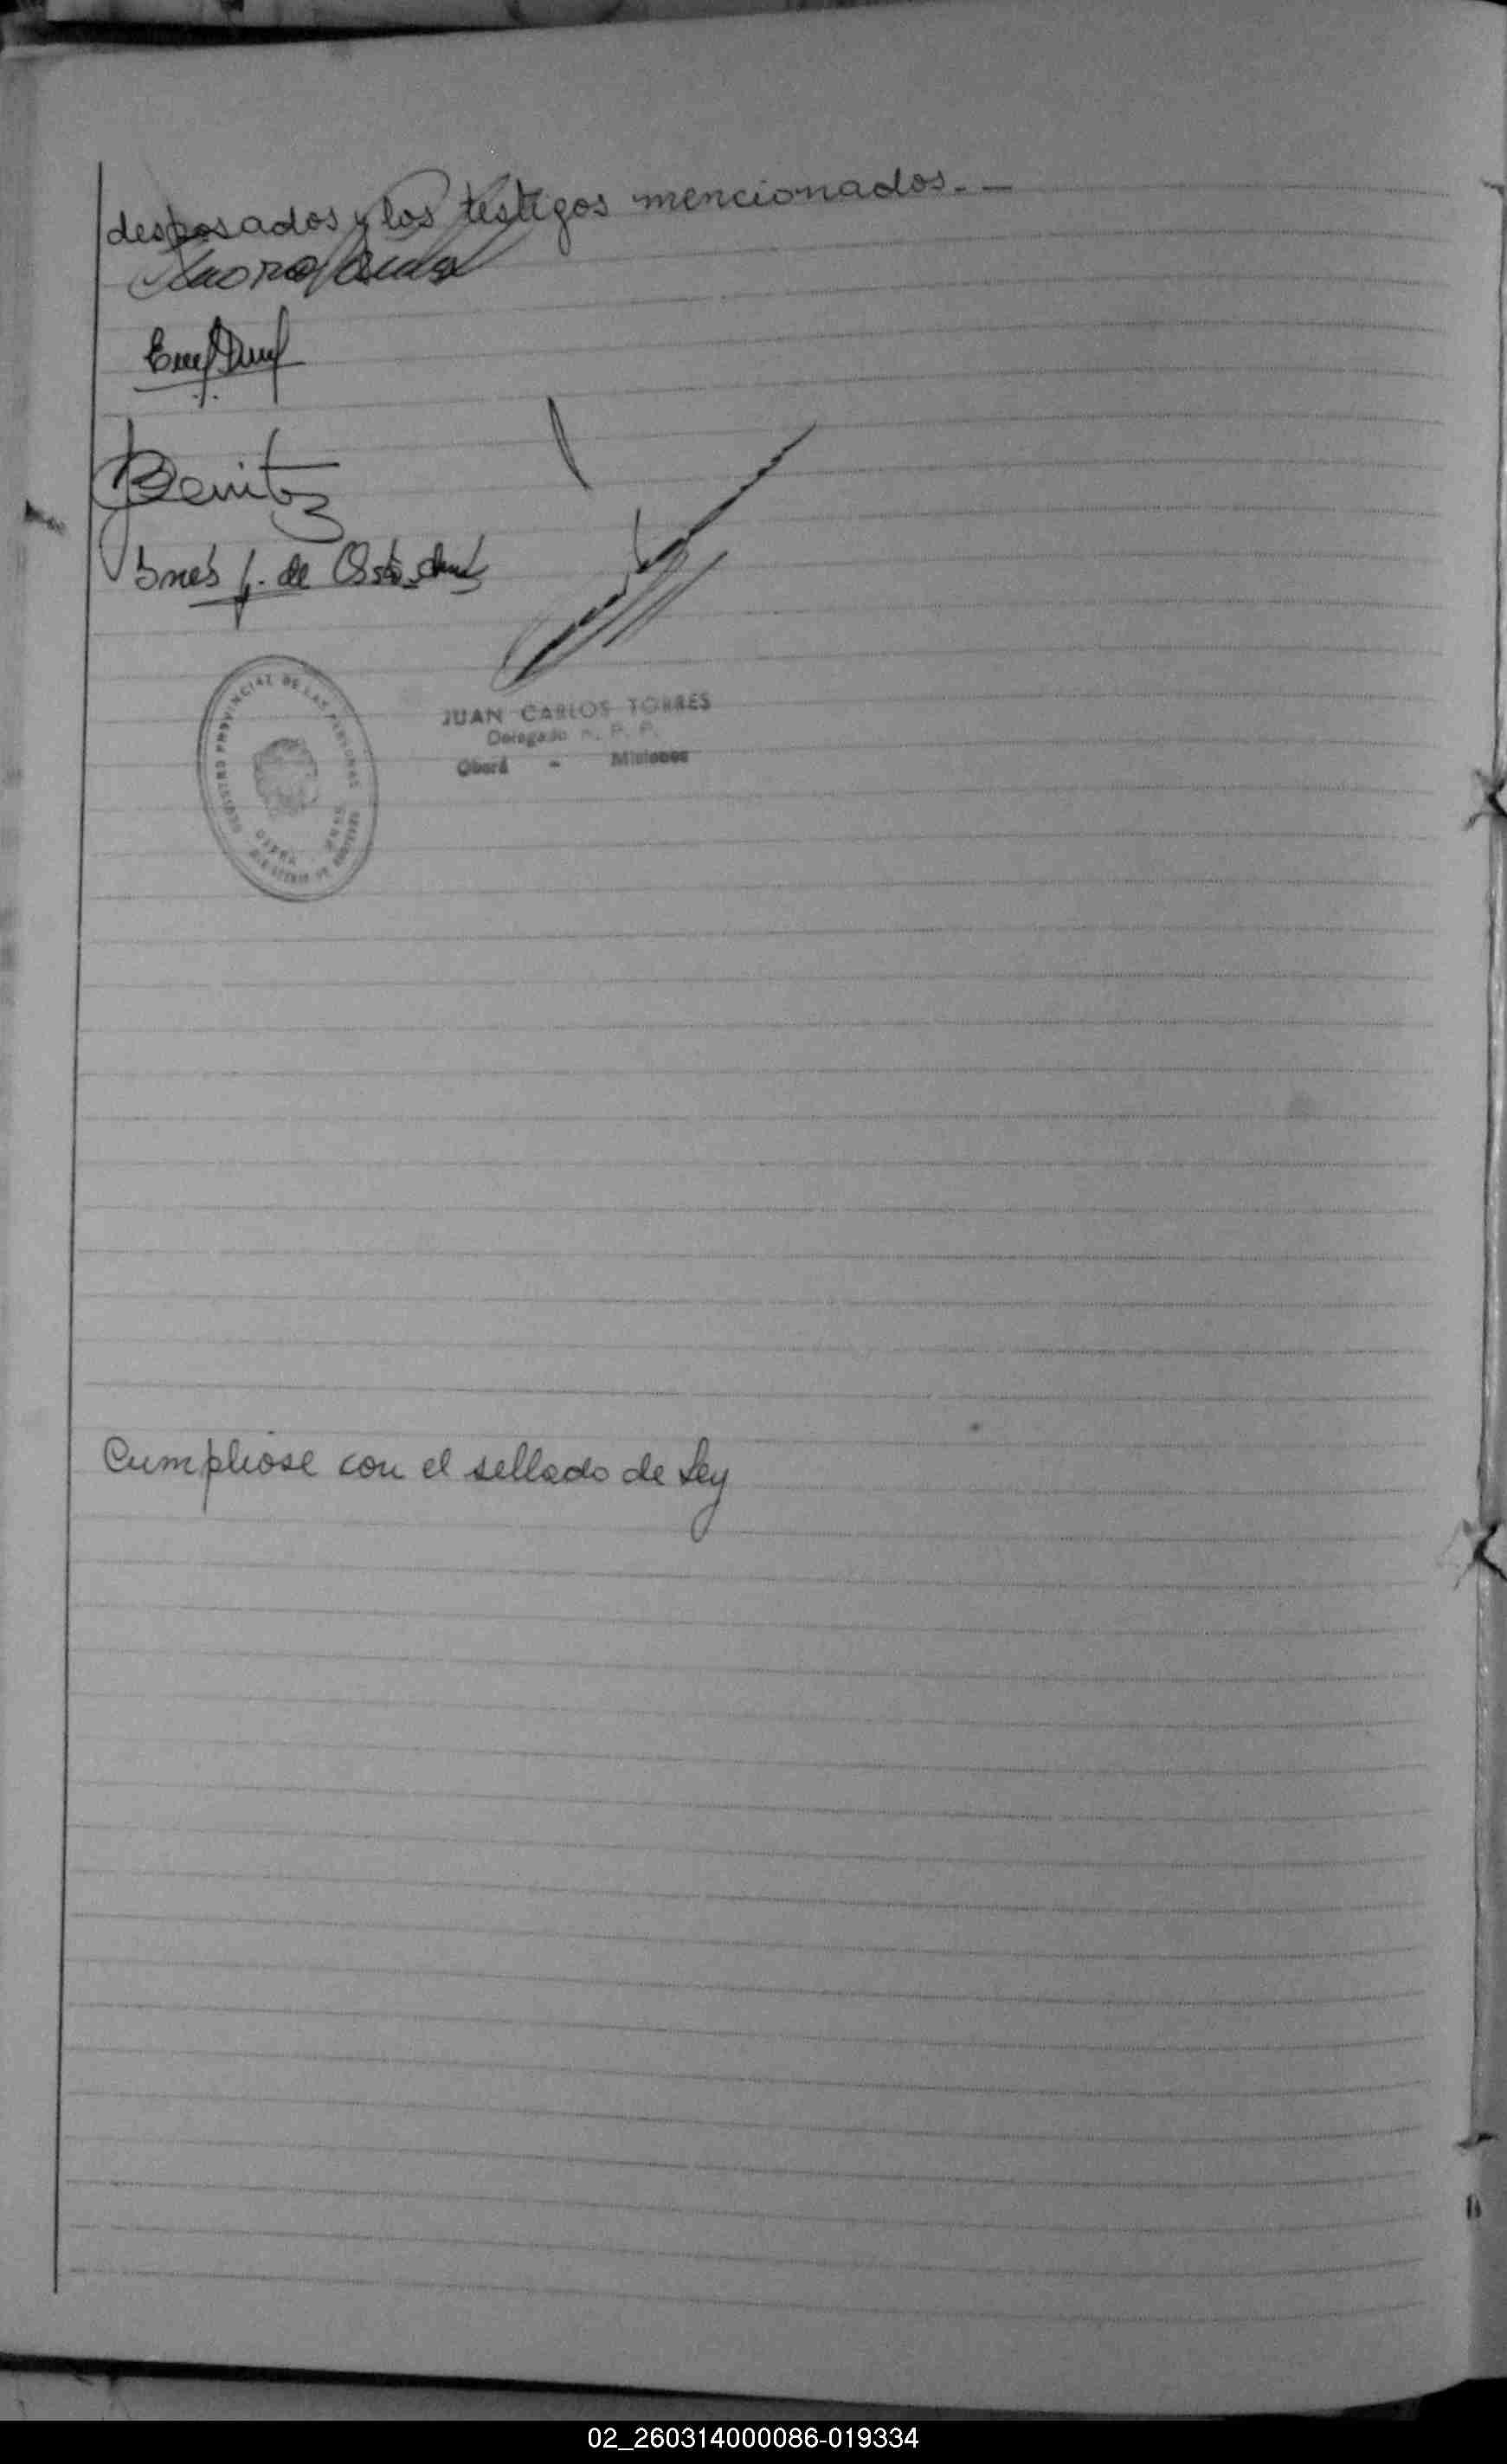 desposados y los testigos mencionados. —
Benitez
Ines J. de
REGISTRO PROVINCIAL DE LAS PERSONAS
OBERA
JUAN CARLOS TORRES
Delegado R. P. P.
Oberá - Misiones
Cumpliose con el sellado de Ley
02_260314000086-019334